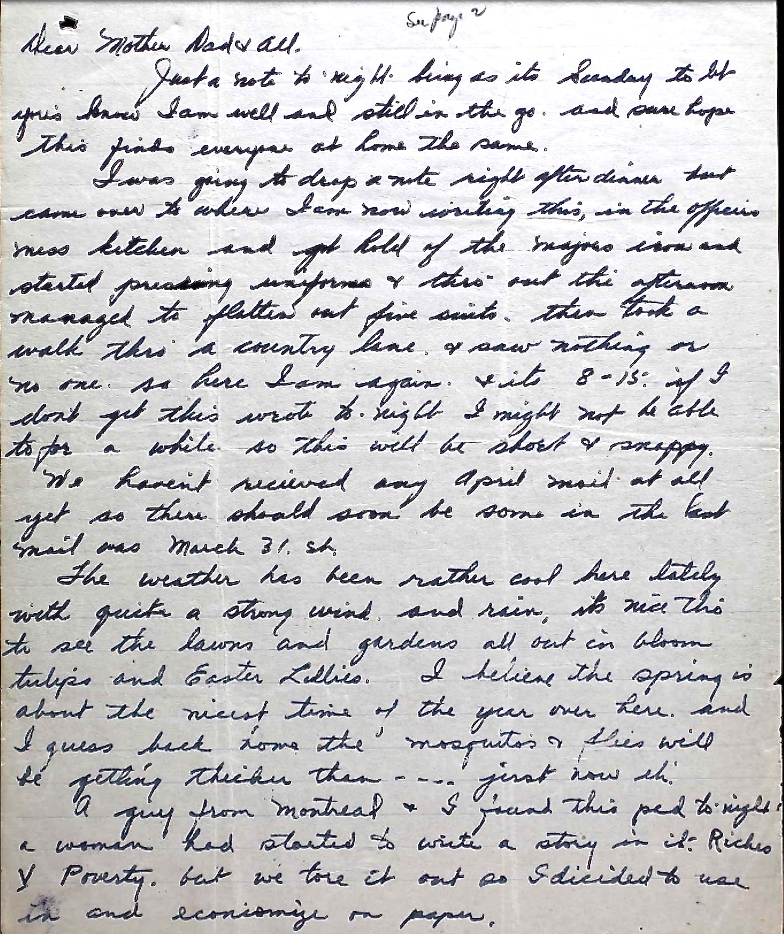 See page 2
Dear Mother Dad & All.
Just a note to night being as its Sunday to let
you's know I am well and still in the go. and sure hope
this finds everyone at home the same.
I was going to drop a note right after dinner but
came over to where I am now writing this, in the officers
mess kitchen and got hold of the majors iron and
started pressing uniforms & thro out the afternoon
managed to flatten out five suits. then took a
walk thro a country lane. & saw nothing or
no one. so here I am again. & its 8-15. if I
dont get this wrote to-night I might not be able
to for a while so this will be short & snappy.
We havent recieved any April mail at all
yet so there should soon be some in the last
mail was March 31. st.
The weather has been rather cool here lately
with quite a strong wind. and rain, its nice tho
to see the lawns and gardens all out in bloom
tulips and Easter Lillies. I believe the spring is
about the nicest time of the year over here. and
I guess back home the mosquitos & flies will
be getting thicker than ---- just now eh.
A guy from Montreal & I found this pad to-night
a woman had started to write a story in it. Riches
& Poverty. but we tore it out so I dicided to use
it and econiomize on paper.